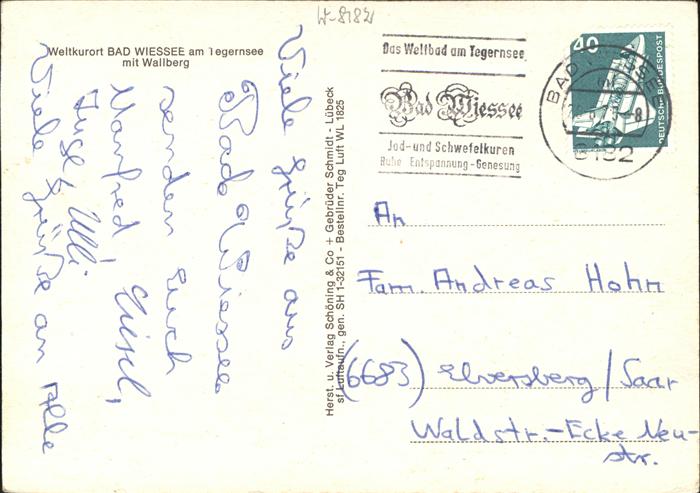 W-8182
Weltkurort BAD WIESSEE am Tegernsee
mit Wallberg
Viele Grüße aus
Bad Wiessee
senden Euch
Manfred, Gisel,
Inge & Ulli
Viele Grüße an Alle
Herst. u. Verlag Schöning & Co + Gebrüder Schmidt - Lübeck
sf Luftaufn., gen. SH 1-32151 - Bestellnr. Teg Luft WL 1825
Das Weltbad am Tegernsee
Bad Wiessee
Jod- und Schwefelkuren
Ruhe Entspannung - Genesung
BAD WIESSEE
-8
8182
40
DEUTSCHE BUNDESPOST
An
Fam. Andreas Hohn
(6683) Elversberg/Saar
Waldstr.-Ecke Neu-
str.